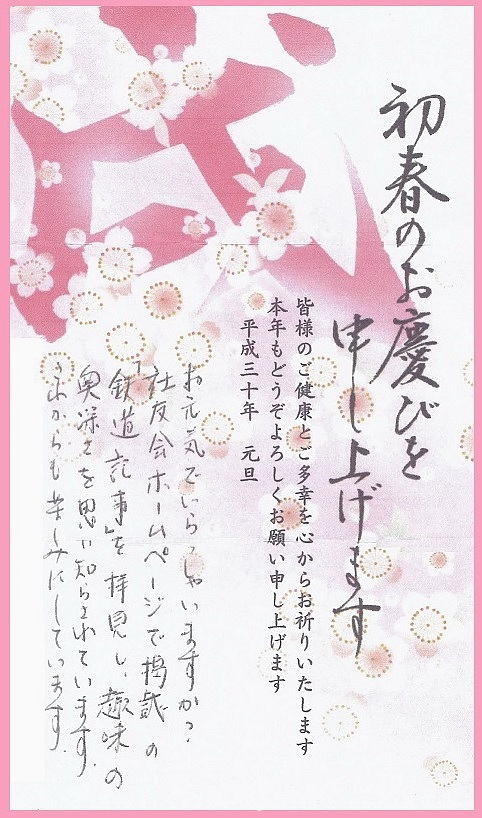 初春のお慶びを
申し上げます
皆様のご健康とご多幸を心からお祈りいたします
本年もどうぞよろしくお願い申し上げます
平成三十年　元旦
お元気でいらっしゃいますか?
社友会ホームページで掲載の
「鉄道記事」を拝見し、趣味の
奥深さを思い知らされています。
これからも楽しみにしています。